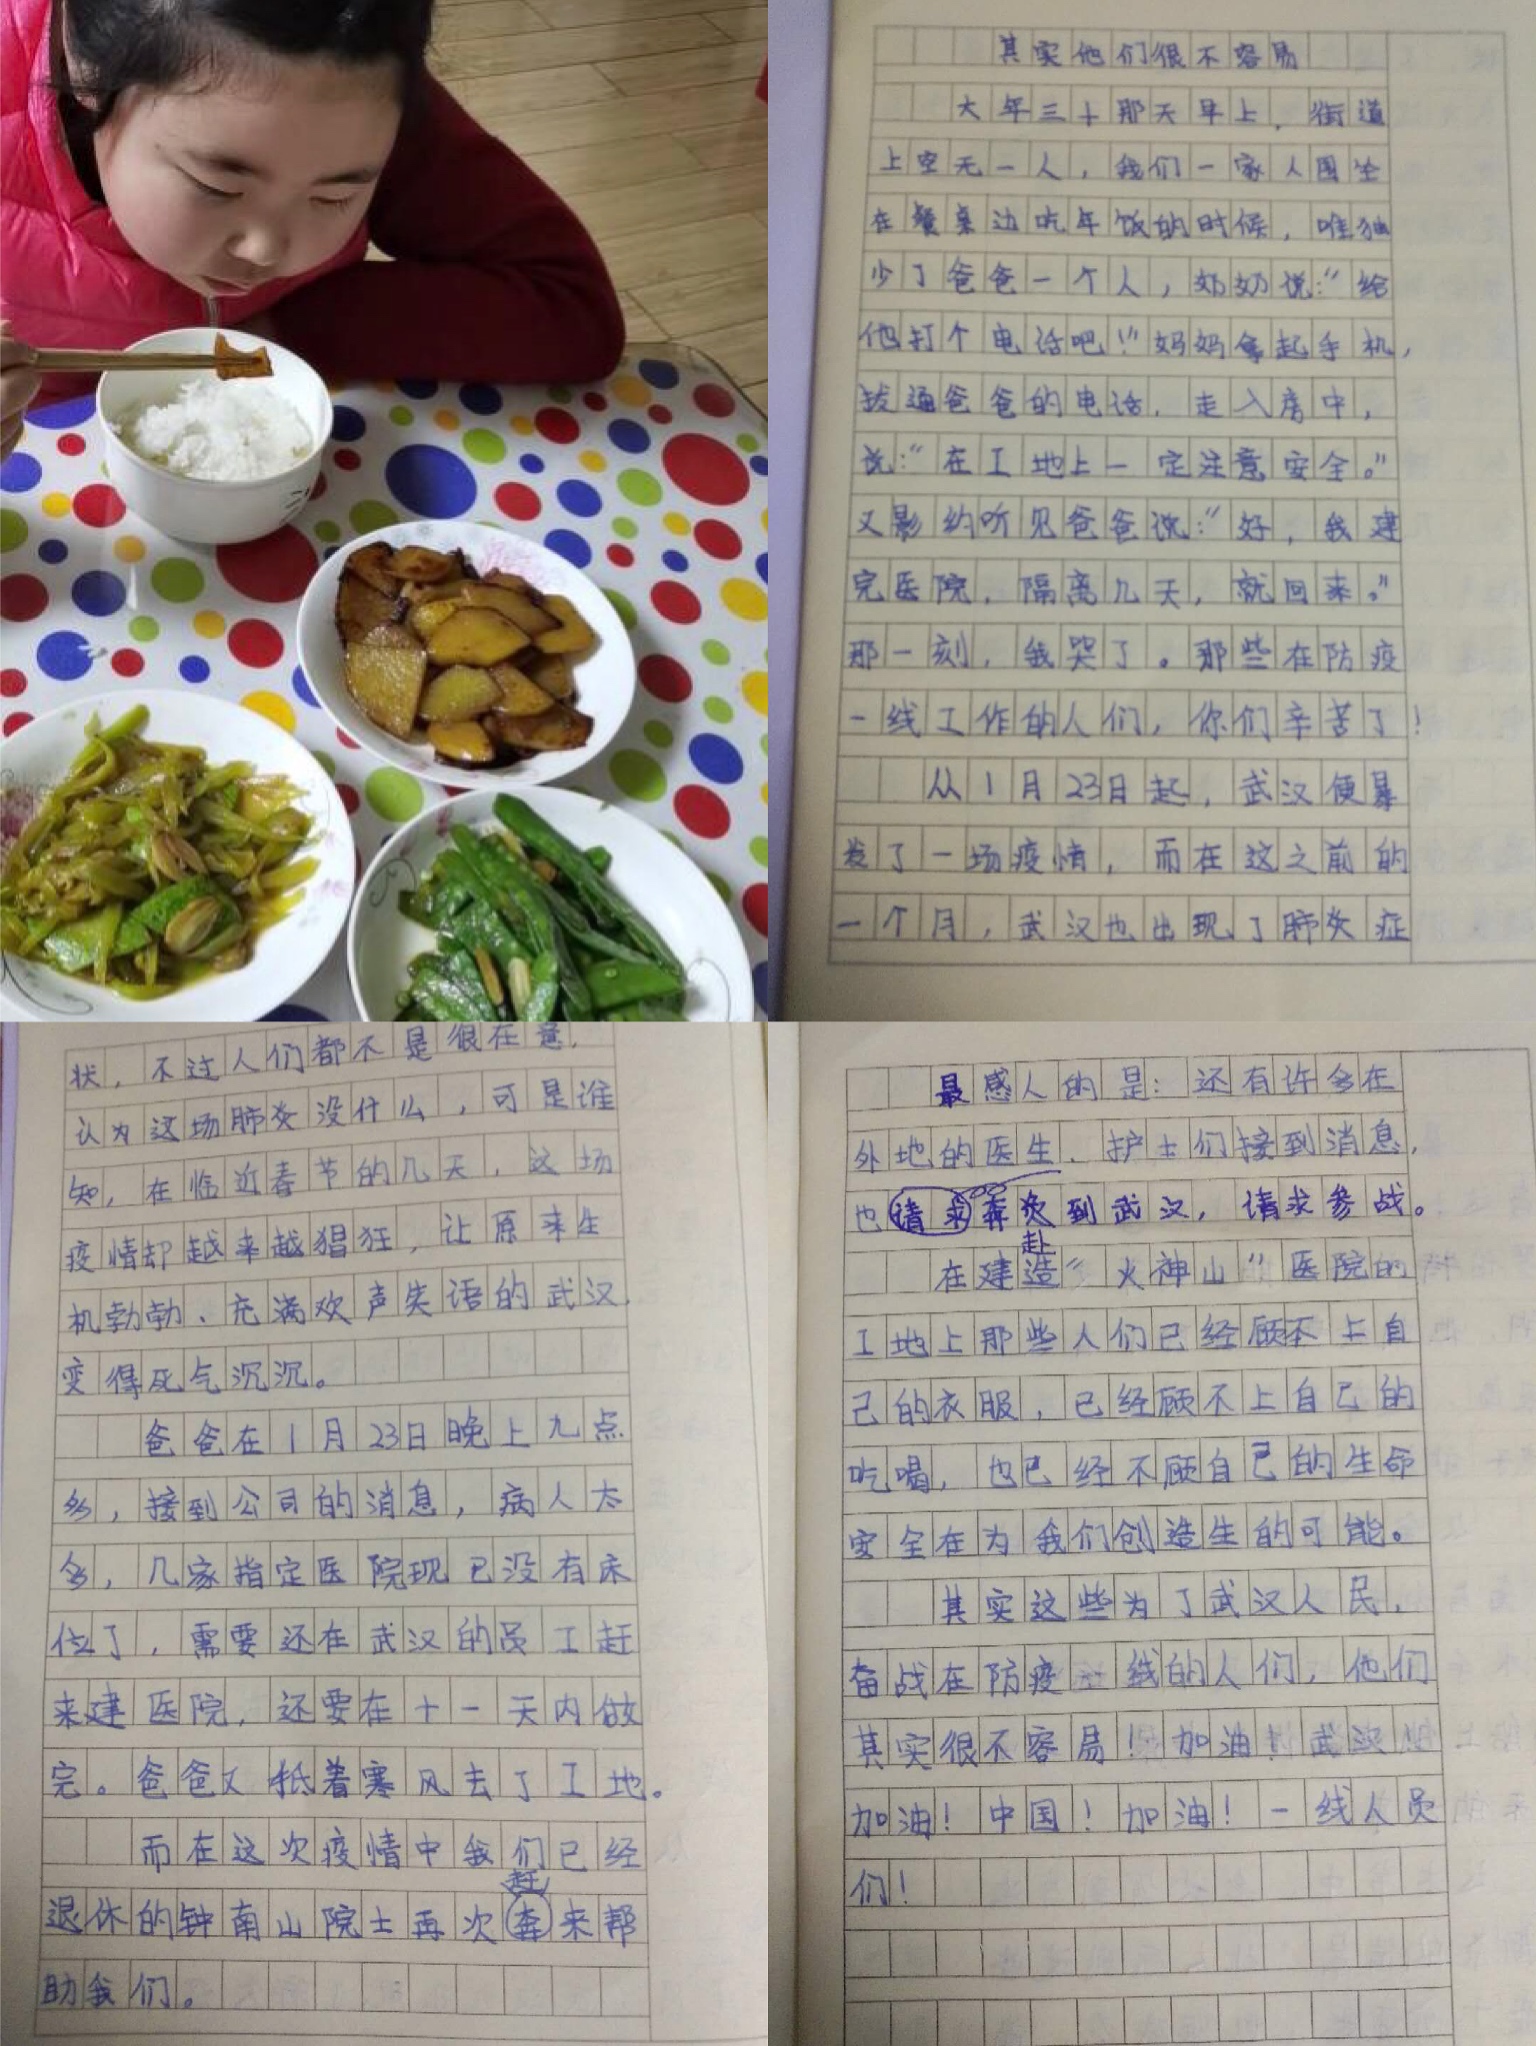 其实他们很不容易
大年三十那天早上，街道
上空无一人，我们一家人围坐
在餐桌边吃年饭的时候，唯独
少了爸爸一个人，奶奶说：“给
他打个电话吧！”妈妈拿起手机，
拨通爸爸的电话，走入房中，
说：“在工地上一定注意安全。”
又影约听见爸爸说：“好，我建
完医院，隔离几天，就回来。”
那一刻，我哭了。那些在防疫
一线工作的人们，你们辛苦了！
从1月23日起，武汉便暴
发了一场疫情，而在这之前的
一个月，武汉也出现了肺炎症
状，不过人们都不是很在意，
认为这场肺炎没什么，可是谁
知，在临近春节的几天，这场
疫情却越来越猖狂，让原来生
机勃勃、充满欢声失语的武汉，
变得死气沉沉。
爸爸在1月23日晚上九点
多，接到公司的消息，病人太
多，几家指定医院现已没有床
位了，需要还在武汉的员工赶
来建医院，还要在十一天内做
完。爸爸又抵着寒风去了工地。
而在这次疫情中我们已经
赶
退休的钟南山院士再次奔来帮
助我们。
最感人的是：还有许多在
外地的医生、护士们接到消息，
也请求奔到武汉，请求参战。
赴
在建造“火神山”医院的
工地上那些人们已经顾不上自
己的衣服，已经顾不上自己的
吃喝，也已经不顾自己的生命
安全在为我们创造生的可能。
其实这些为了武汉人民，
奋战在防疫一线的人们，他们
其实很不容易！加油！武汉！
加油！中国！加油！一线人员
们！